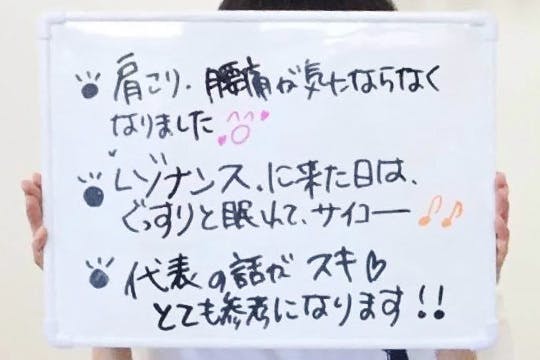 肩こり・腰痛が気にならなく
なりました
レゾナンス、に来た日は、
ぐっすりと眠れて、サイコー
代表の話がスキ♡
とても参考になります!!